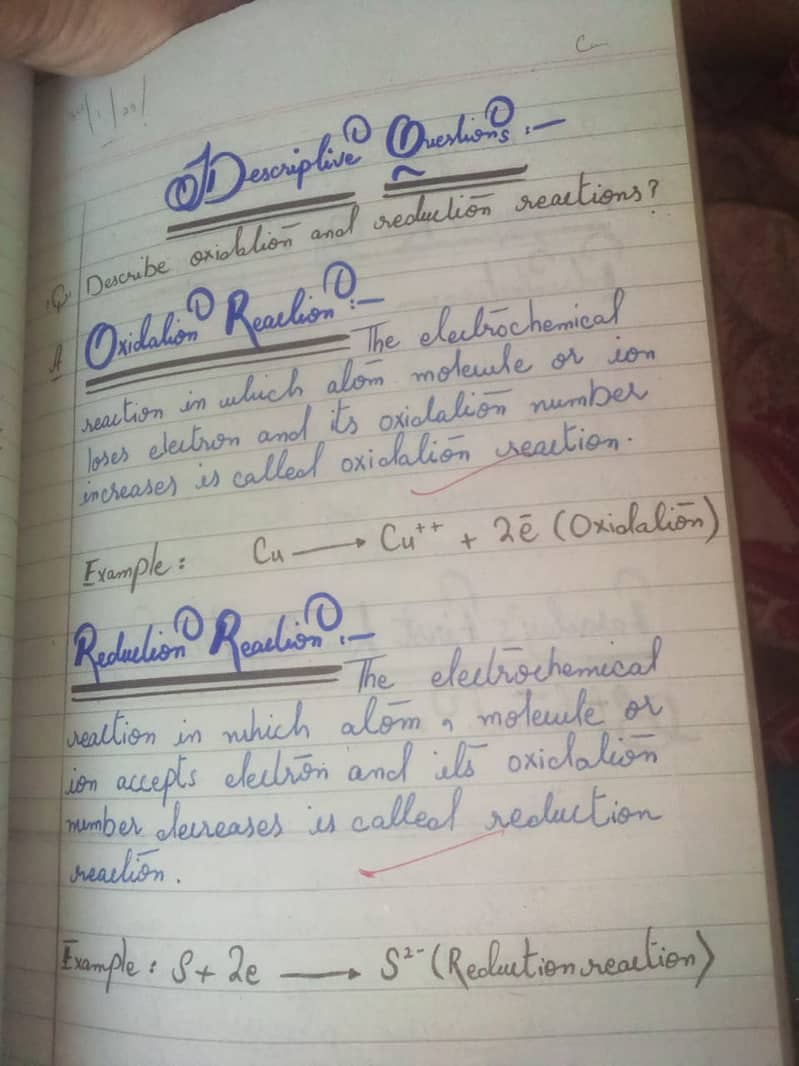 Descriptive Questions :-
Q. Describe oxidation and reduction reactions?
A Oxidation Reaction :-
The electrochemical
reaction in which atom molecule or ion
loses electron and its oxidation number
increases is called oxidation reaction.
Example : Cu ⟶ Cu⁺⁺ + 2ē (Oxidation)
Reduction Reaction :-
The electrochemical
reaction in which atom, molecule or
ion accepts electron and its oxidation
number decreases is called reduction
reaction.
Example : S + 2e ⟶ S²⁻ (Reduction reaction)